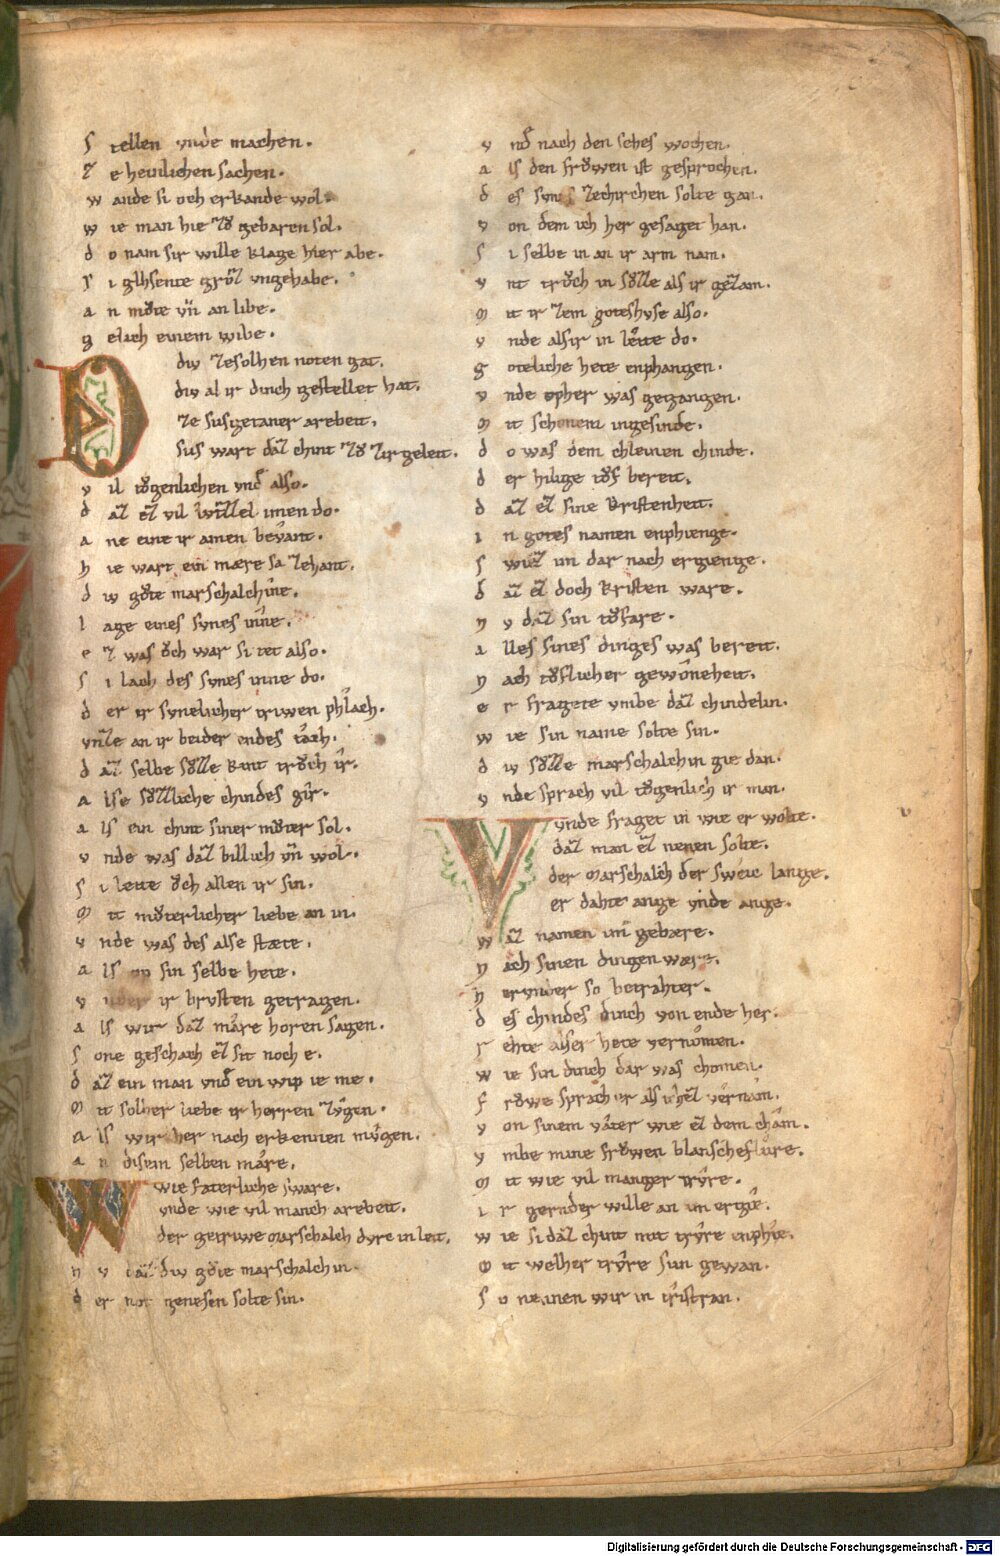 s tellen vnde machen.
z e heinlichen sachen.
w ande si och erkande wol.
w ie man hie zů gebaren sol.
d o nam sir wille klage hier abe.
s i glihsente groͤz vngehabe.
a n můte vn̄ an libe.
g elich einem wibe.
D diu ze solhen noten gat.
diu al ir dinch gestellet hat.
ze susgetaner arebeit.
sus wart daz chint zů zir geleit.
v il tǒgenlichen vnd also.
d az ez vil wizzel imen do.
a ne eine ir amen bevant.
h ie wart ein mære sa zehant.
d iu gůte marschalchinne.
l age eines synes inne.
e z was ǒch war si tet also.
s i lach des synes inne do.
d er ir synelicher triwen phlach.
vnze an ir beider endes tach.
d az selbe sůzze kint trůch ir.
a lse sůzliche chindes gir.
a ls ein chint siner můter sol.
v nde was daz billich vn̄ wol.
s i leite ǒch allen ir sin.
m it můterlicher liebe an in.
v nde was des alse stæte.
a ls op sin selbe hete.
v nder ir brvsten getragen.
a ls wir daz mære horen sagen.
s one geschach ez sit noch e.
d az ein man vnd ein wip ie me.
m it solher liebe ir herren zvgen.
a ls wir her nach erkennen mvgen.
a n disem selben mære.
W wie faterliche sware.
vnde wie vil manch arebeit.
der getriwe marschalch dvre in leit.
n v daz diu gůte marschalchin.
d er not genesen solte sin.
v nd nach den sehes wochen.
a ls den frǒwen ist gesprochen.
d es svns zechirchen solte gan.
v on dem ich her gesaget han.
s i selbe in an ir arm nam.
v nt trůch in sůzze als ir gezam.
m it ir zem goteshvse also.
v nde alsir in leitte do.
g oteliche hete enphangen.
v nde opher was gegangen.
m it schonem ingesinde.
d o was dem chleinen chinde.
d er hilige tǒf bereit.
d az ez sine kristenheit.
i n gotes namen enphienge.
s wiez im dar nach ergienge.
d az ez doch kristen ware.
n v daz sin tǒfare.
a lles sines dinges was bereit.
n ach tǒflicher gewoneheit.
e r fragete vmbe daz chindelin.
w ie sin name solte sin.
d iu sůzze marschalchin gie dan.
v nde sprach vil tǒgenlich ir man.
V vnde fraget in wie er wolte.
daz man ez nenen solte.
der marschalch der sweic lange.
er dahte ange vnde ange.
w az namen im gebære.
n ach sinen dingen wære.
h ervnder so betrahter.
d es chindes dinch von ende her.
r ehte alser hete vernomen.
w ie sin dinch dar was chomen.
f rǒwe sprach er als ichz vernam.
v on sinem vater wie ez dem cham.
v mbe mine frǒwen blanscheflure.
m it wie vil manger trvre.
i r gernder wille an im ergie.
w ie si daz chint mit trvre inphie.
m it welher trvre siin gewan.
s o nennen wir in tristran.
Digitalisierung gefördert durch die Deutsche Forschungsgemeinschaft - DFG